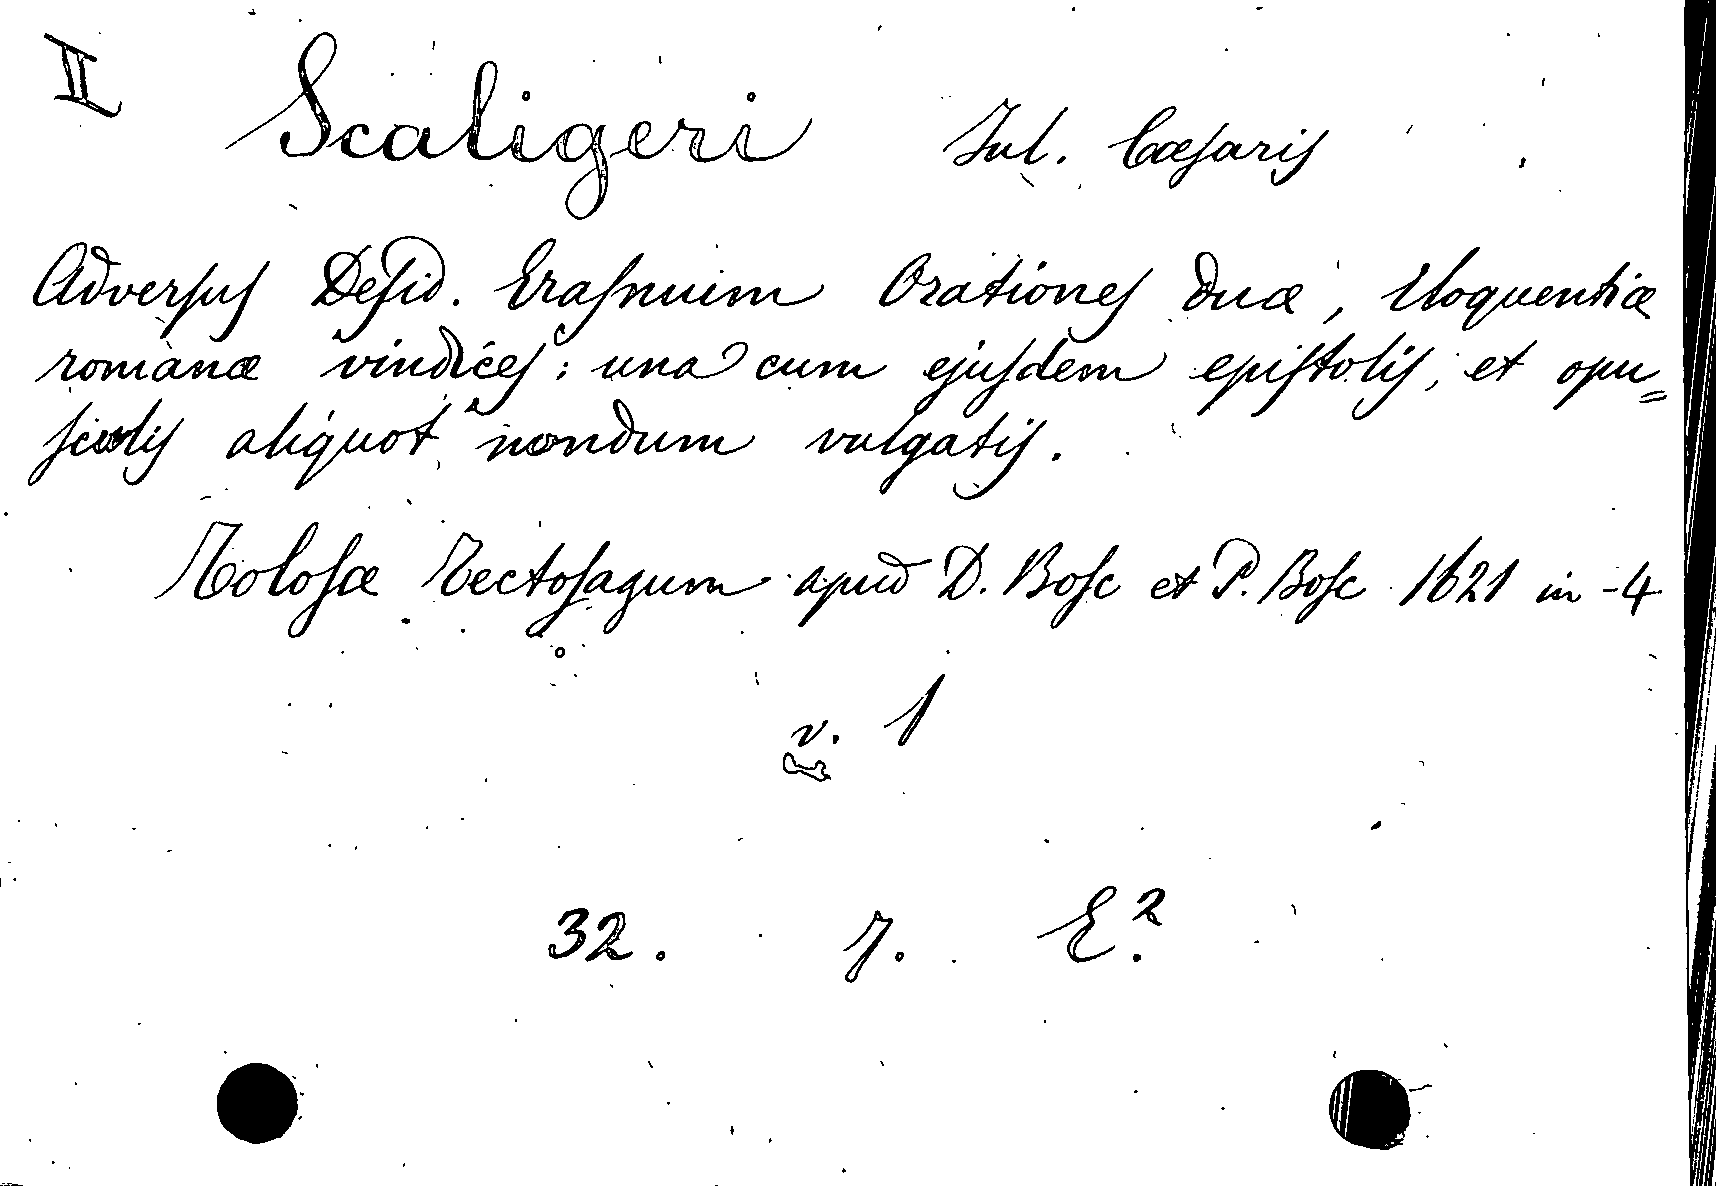 II Scaligeri Jul. Cæsaris
Adversus Desid. Erasmum Orationes duæ, Eloquentiæ
romanæ vindices: una cum ejusdem epistolis, et opu=
sculis aliquot nondum vulgatis.
Tolosæ Tectosagum apud D. Bosc et P. Bosc 1621 in-4
v. 1
32. 7. E².